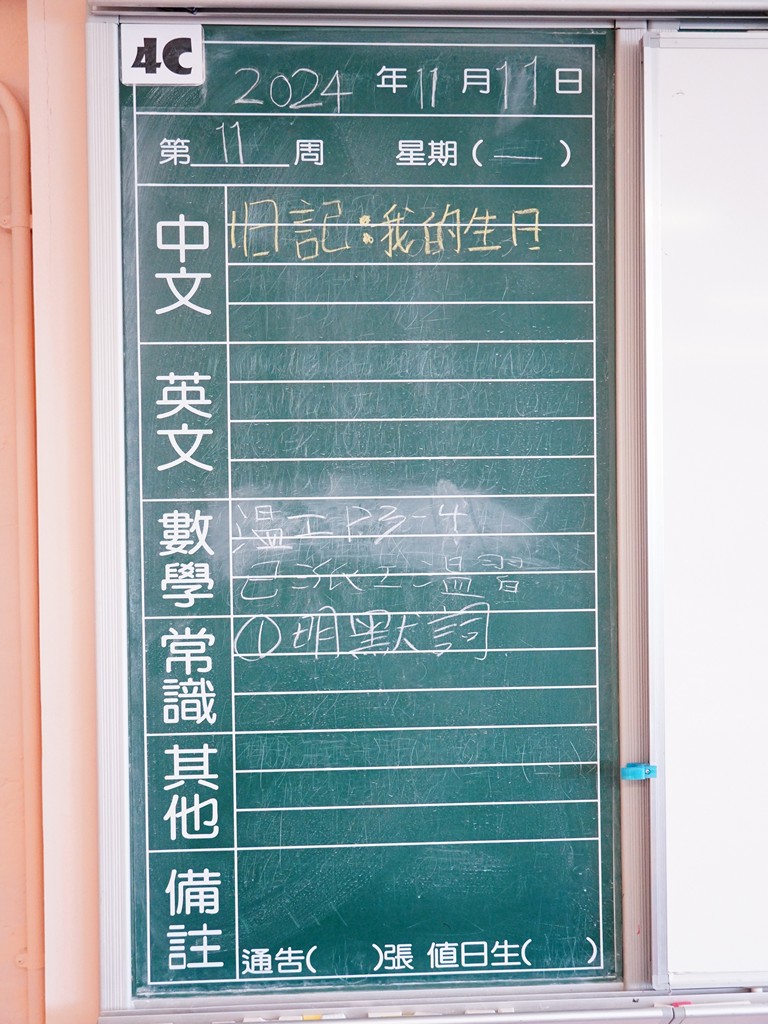 4C
2024 年 11 月 11 日
第 11 周 星期 ( 一 )
中文
旧記：我的生日
英文
數學
溫工P.3-4
溫習
常識
①明默詞
其他
備註
通告( )張 值日生( )